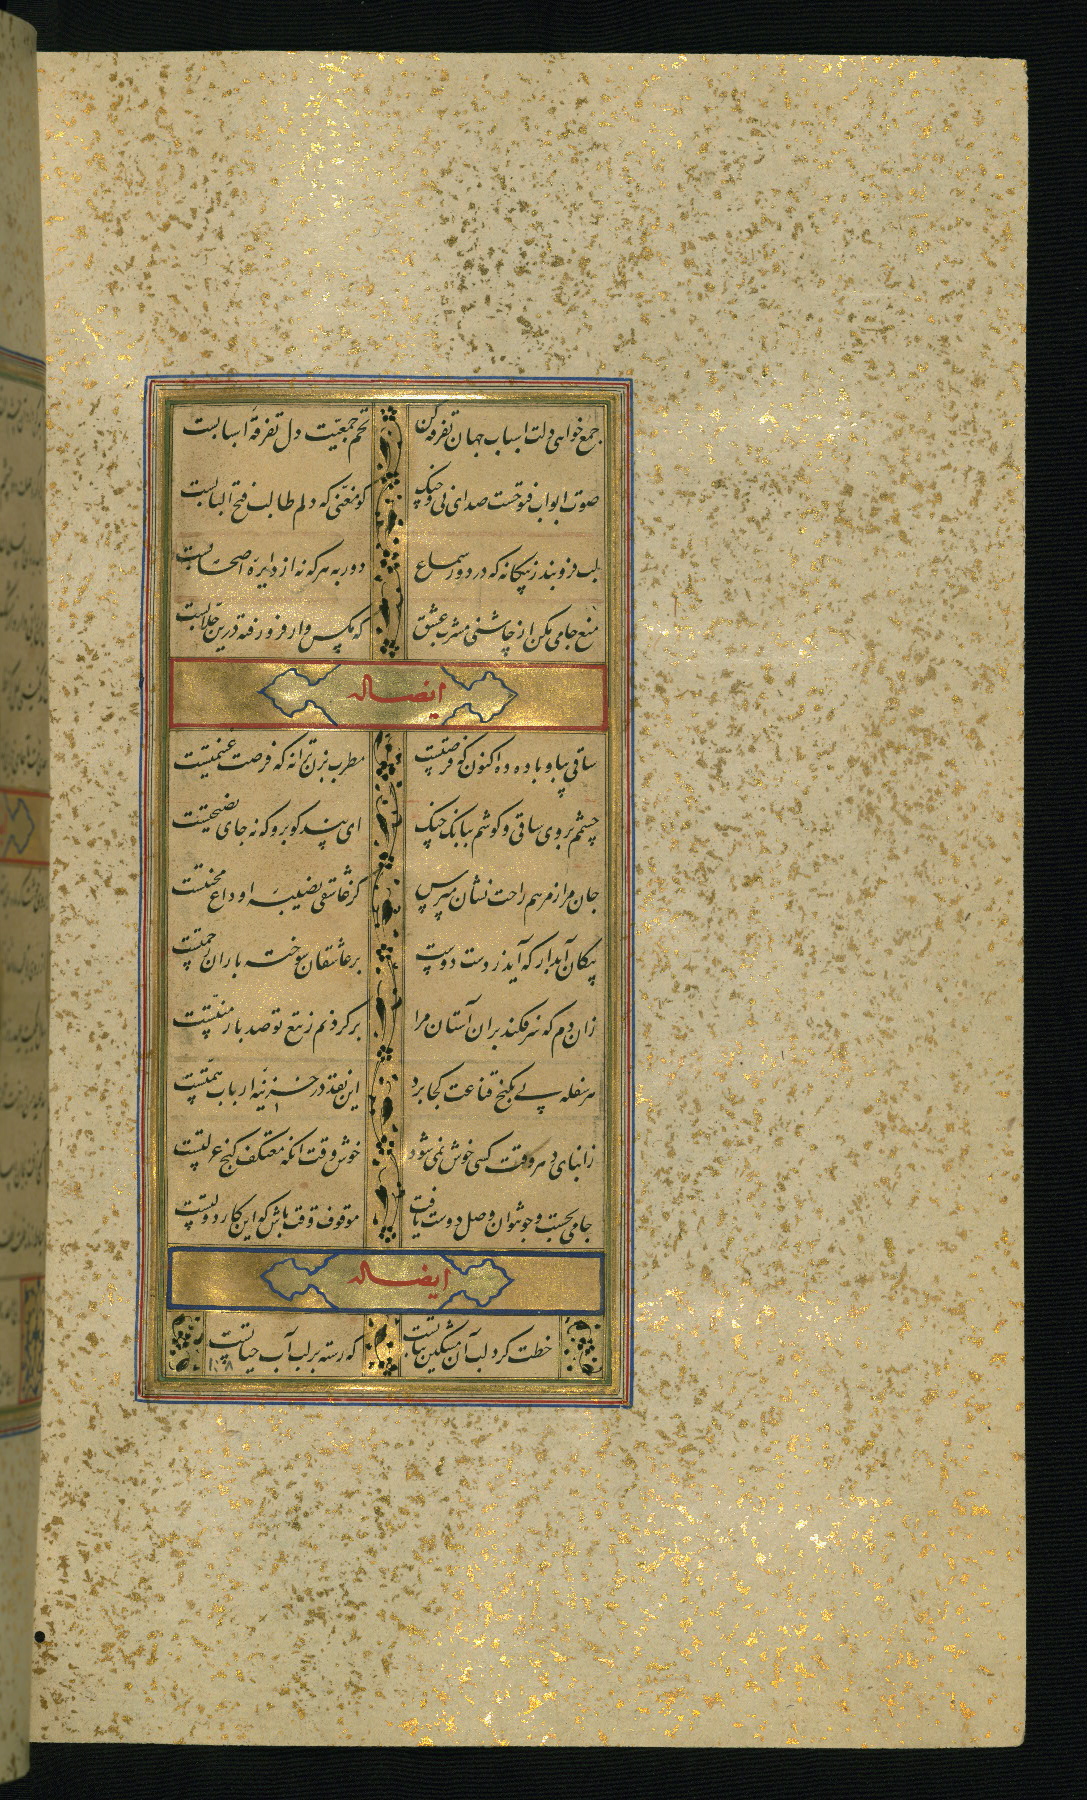 جمع خواهی دلت اسباب جهان تفرقه کن تخم جمعیت دل تفرقه اسبابست
صوت ابواب فتوحست صدای نی و چنگ کو مغنی که دلم طالب فتح البابست
لب فروبند ز بیگانه که در دور سماع دور به هر که نه از دایره اصحابست
منع جامی مکن از چاشنی مشرب عشق که مگس وار فرو رفته درین جلابست
ایضا له
ساقی بیا و باده ده اکنون که فرصتست مطرب بزن ترانه که فرصت غنیمتست
چشمم بروی ساقی و گوشم ببانک چنگ ای پند گو برو که نه جای نصیحتست
جان مرا ز مرهم راحت نشان مپرس کز عاشقی نصیبه او داغ محنتست
پیکان آبدار که آید ز دست دوست بر عاشقان سوخته باران رحمتست
زان دم که سر فکند بران آستان مرا بر گردنم ز تیغ تو صد بار منتست
هر سفله پی بکنج قناعت کجا برد این نقد در خزینه ارباب همتست
ز ابنای دهر وقت کسی خوش نمی شود خوش وقت آنکه معتکف کنج عزلتست
جامی بجست و جو نتوان وصل دوست یافت موقوف وقت باش که این کار دولتست
ایضا له
خطت که گرد لب آن مشکین نباتست که رسته بر لب آب حیاتست